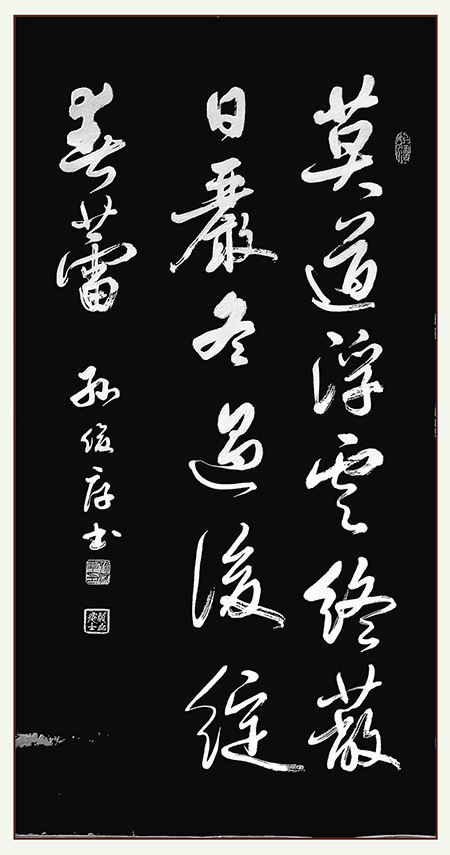 莫道浮雲終蔽
日嚴冬過後綻
春蕾
孫俊存書